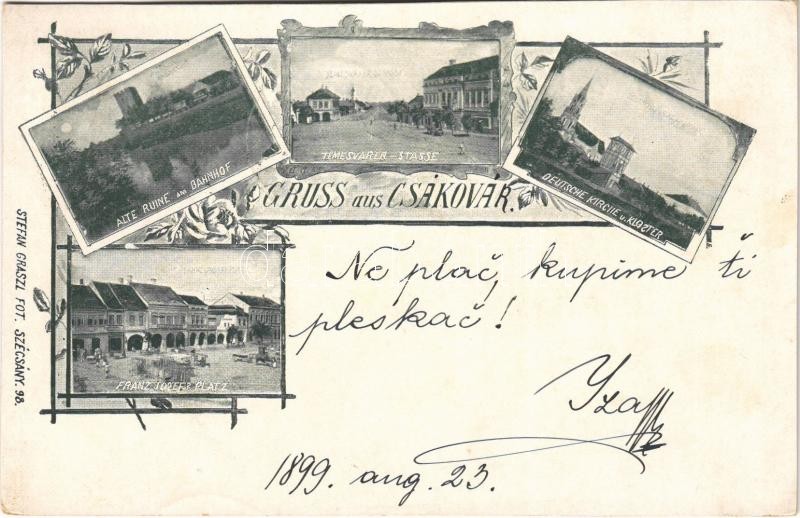 ALTE RUINE am BAHNHOF
TEMESVARER - STASSE
DEUTSCHE KIRCHE u. KLOSTER
GRUSS aus CSÁKOVÁR.
FRANZ JOSEFS PLATZ
STEFAN GRASZL FOT. SZÉCSÁNY. 98.
Ne plač, kupime ti
pleskač!
Iza
1899. aug. 23.